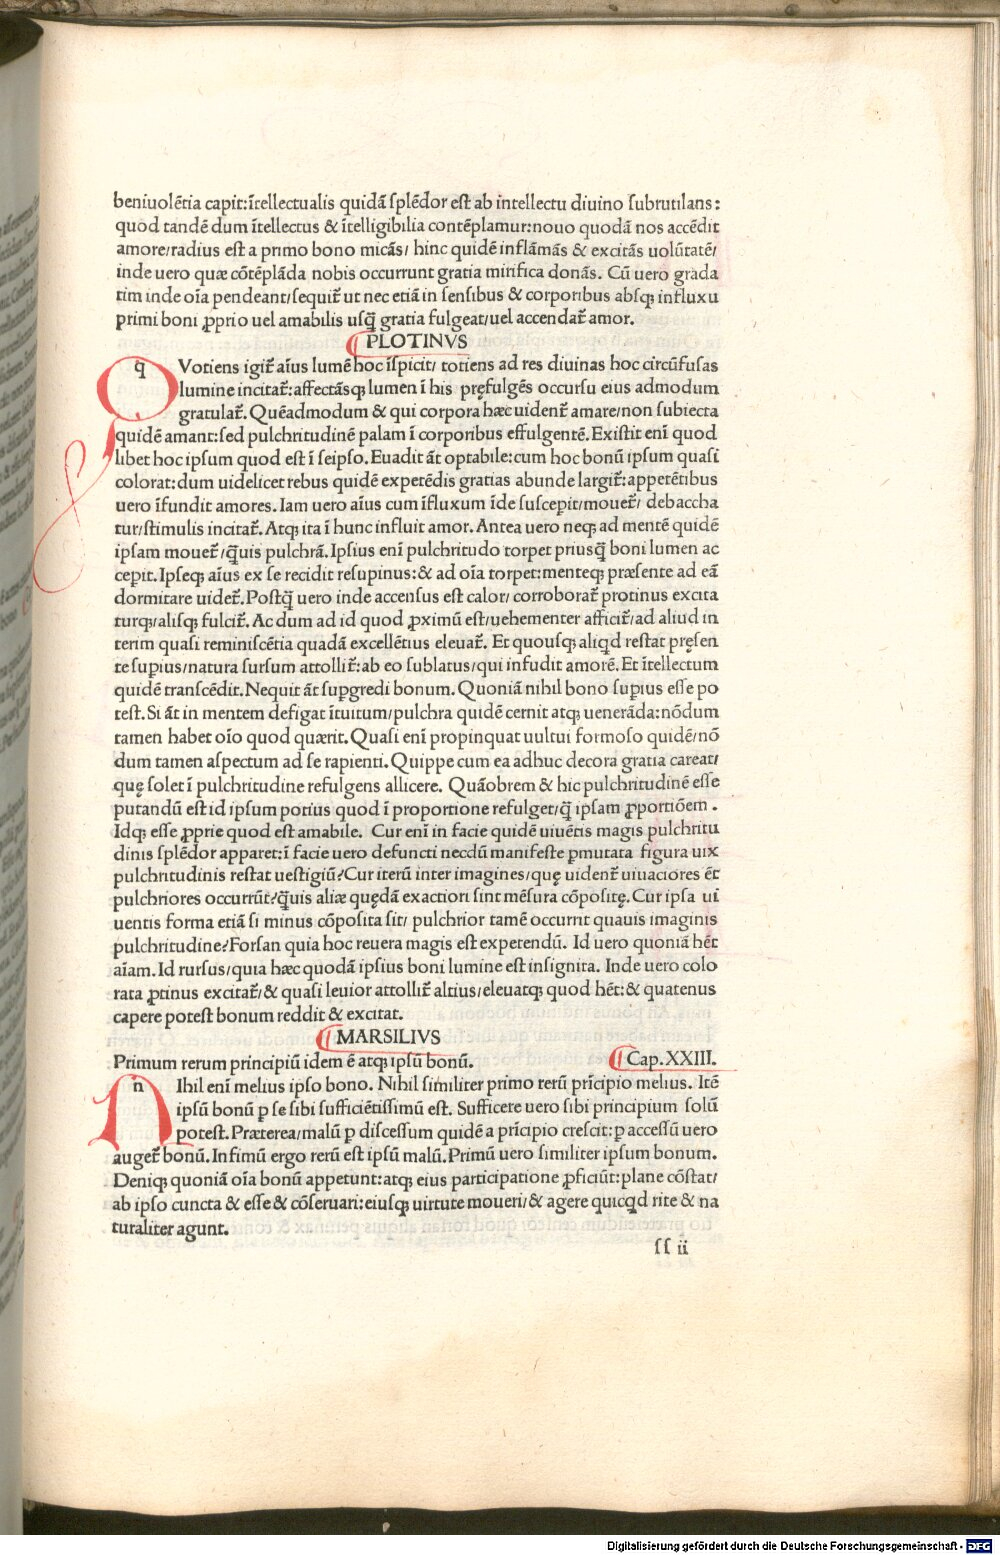 beniuolẽtia capit:ĩtellectualis quidã ſplẽdor eſt ab intellectu diuino ſubrutilans:
quod tandẽ dum ĩtellectus & ĩtelligibilia contẽplamur:nouo quodã nos accẽdit
amore/radius eſt a primo bono micãs/ hinc quidẽ inflãmãs & excitãs uolũtatẽ/
inde uero quæ cõtẽplãda nobis occurrunt gratia mirifica donãs. Cũ uero grada
tim inde oĩa pendeant/ſequit᷑ ut nec etiã in ſenſibus & corporibus abſqꝫ influxu
primi boni ꝓprio uel amabilis uſq̃ gratia fulgeat/uel accendat᷑ amor.
PLOTINVS
q Votiens igit᷑ aĩus lumẽ hoc ĩſpicit/ totiens ad res diuinas hoc circũfuſas
lumine incitat᷑:affectãſqꝫ lumen ĩ his pręfulgẽs occurſu eius admodum
gratulat᷑. Quẽadmodum & qui corpora hæc uident᷑ amare/non ſubiecta
quidẽ amant:ſed pulchritudinẽ palam ĩ corporibus effulgentẽ. Exiſtit enĩ quod
libet hoc ipſum quod eſt ĩ ſeipſo. Euadit ãt optabile:cum hoc bonũ ipſum quaſi
colorat:dum uidelicet rebus quidẽ expetẽdis gratias abunde largit᷑:appetẽtibus
uero ĩfundit amores. Iam uero aĩus cum ĩfluxum ĩde ſuſcepit/mouet᷑/ debaccha
tur/ſtimulis incitat᷑. Atqꝫ ita ĩ hunc influit amor. Antea uero neqꝫ ad mentẽ quidẽ
ipſam mouet᷑/q̃uis pulchrã. Ipſius enĩ pulchritudo torpet priusq̃ boni lumen ac
cepit. Ipſeqꝫ aĩus ex ſe recidit reſupinus:& ad oĩa torpet:menteqꝫ præſente ad eã
dormitare uidet᷑. Poſtq̃ uero inde accenſus eſt calor/ corroborat᷑ protinus excita
turqꝫ/aliſqꝫ fulcit᷑. Ac dum ad id quod ꝓximũ eſt/uehementer afficit᷑/ad aliud in
terim quaſi reminiſcẽtia quadã excellẽtius eleuat᷑. Et quouſqꝫ aliqd reſtat pręſen
te ſuꝑius/natura ſurſum attollit᷑:ab eo ſublatus/qui infudit amorẽ. Et ĩtellectum
quidẽ tranſcẽdit. Nequit ãt ſuꝑgredi bonum. Quoniã nihil bono ſuꝑius eſſe po
teſt. Si ãt in mentem defigat ĩtuitum/pulchra quidẽ cernit atqꝫ uenerãda:nõdum
tamen habet oĩo quod quærit. Quaſi enĩ propinquat uultui formoſo quidẽ/nõ
dum tamen aſpectum ad ſe rapienti. Quippe cum ea adhuc decora gratia careat/
quę ſolet ĩ pulchritudine refulgens allicere. Quãobrem & hic pulchritudinẽ eſſe
putandũ eſt id ipſum potius quod ĩ proportione refulget/q̃ ipſam ꝓportiõem .
Idqꝫ eſſe ꝓprie quod eſt amabile. Cur enĩ in facie quidẽ uiuẽtis magis pulchritu
dinis ſplẽdor apparet:ĩ facie uero defuncti necdũ manifeſte ꝑmutata figura uix
pulchritudinis reſtat ueſtigiũ?Cur iterũ inter imagines/quę uident᷑ uiuaciores ẽt
pulchriores occurrũt?q̃uis aliæ quędã exactiori ſint mẽſura cõpoſitę. Cur ipſa ui
uentis forma etiã ſi minus cõpoſita ſit/ pulchrior tamẽ occurrit quauis imaginis
pulchritudine?Forſan quia hoc reuera magis eſt expetendũ. Id uero quoniã hẽt
aĩam. Id rurſus/quia hæc quodã ipſius boni lumine eſt inſignita. Inde uero colo
rata ꝓtinus excitat᷑/& quaſi leuior attollit᷑ altius/eleuatqꝫ quod hẽt:& quatenus
capere poteſt bonum reddit & excitat.
MARSILIVS
Primum rerum principiũ idem ẽ atqꝫ ipſũ bonũ. Cap.XXIII.
n Ihil enĩ melius ipſo bono. Nihil ſimiliter primo rerũ prĩcipio melius. Itẽ
ipſũ bonũ ꝑ ſe ſibi ſufficiẽtiſſimũ eſt. Sufficere uero ſibi principium ſolũ
poteſt. Præterea/malũ ꝑ diſceſſum quidẽ a prĩcipio creſcit:ꝑ acceſſũ uero
auget᷑ bonũ. Infimũ ergo rerũ eſt ipſũ malũ. Primũ uero ſimiliter ipſum bonum.
Deniqꝫ quoniã oĩa bonũ appetunt:atqꝫ eius participatione ꝓficiũt:plane cõſtat/
ab ipſo cuncta & eſſe & cõſeruari:eiuſqꝫ uirtute moueri/& agere quicqd rite & na
turaliter agunt.
ſſ ii
Digitalisierung gefördert durch die Deutsche Forschungsgemeinschaft - DFG